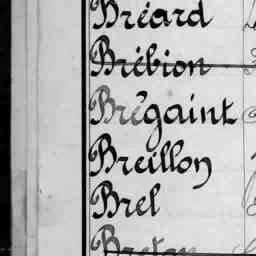 Bréard
Brébion
Brégaint
Breillon
Brel
Breton